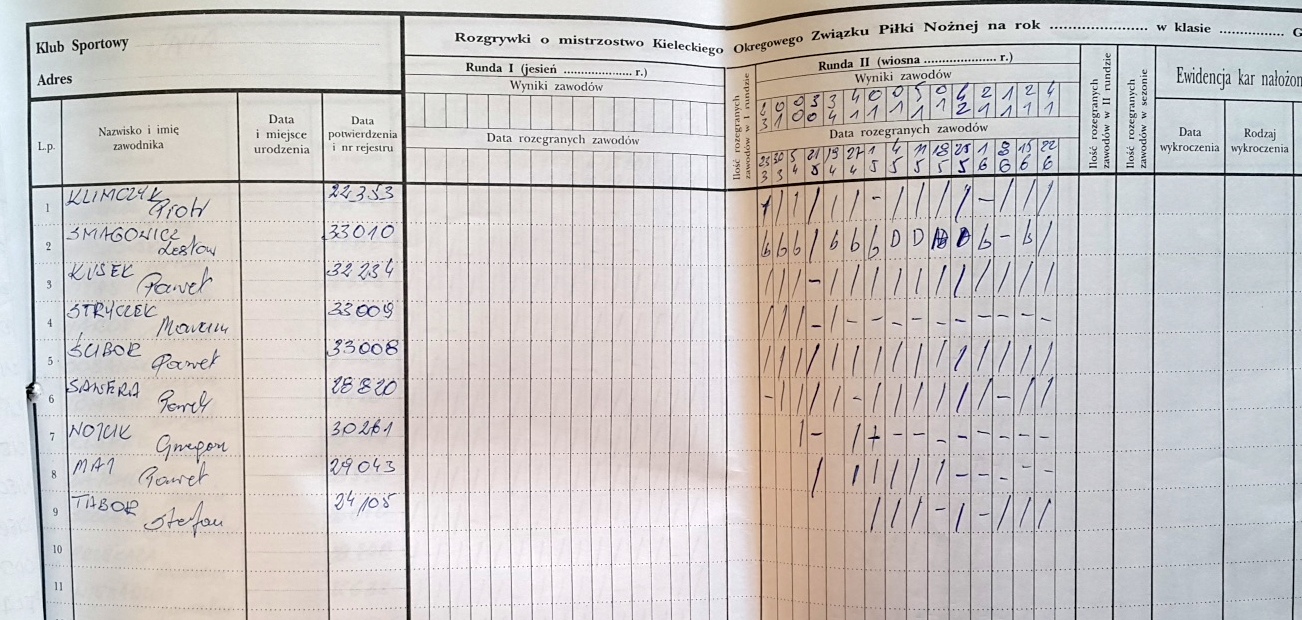 Klub Sportowy
Adres
Rozgrywki o mistrzostwo Kieleckiego Okręgowego Związku Piłki Nożnej na rok .................... w klasie .............. G
Runda I (jesień .................. r.)
Wyniki zawodów
Data rozegranych zawodów
Ilość rozegranych zawodów w I rundzie
Runda II (wiosna .................... r.)
Wyniki zawodów
2 0 0 3 3 4 0 0 5 0 4 2 1 2 4
3 1 0 0 4 1 1 1 1 1 2 1 1 1 1
Data rozegranych zawodów
23 30 5 21 19 27 1 4 11 18 25 1 8 15 22
3 3 4 4 4 5 5 5 5 5 6 6 6 6
Ilość rozegranych zawodów w II rundzie
Ilość rozegranych zawodów w sezonie
Ewidencja kar nałożon
Data wykroczenia
Rodzaj wykroczenia
L.p.
Nazwisko i imię zawodnika
Data i miejsce urodzenia
Data potwierdzenia i nr rejestru
1 KLIMCZYK Piotr 22353 1 / / / / / - / / / / - / / /
2 SMAGOWICZ 33010 b b b / b b b D D D b - b /
3 KUSEK Paweł 32234 / / / - / / / / / / / / / / /
4 STRYCZEK 33009 / / / - / - - - - - - - - -
5 ŚCIBOR Paweł 33008 / / / / / / / / / / / / / / /
6 28820 - / / / / - / / / / / / - / /
7 WÓJCIK 30261 / - / + - - - - - - - -
8 MAJ Paweł 29043 / / / / / / - - - - -
9 TABOR Stefan 24105 / / / - / - / / /
10
11